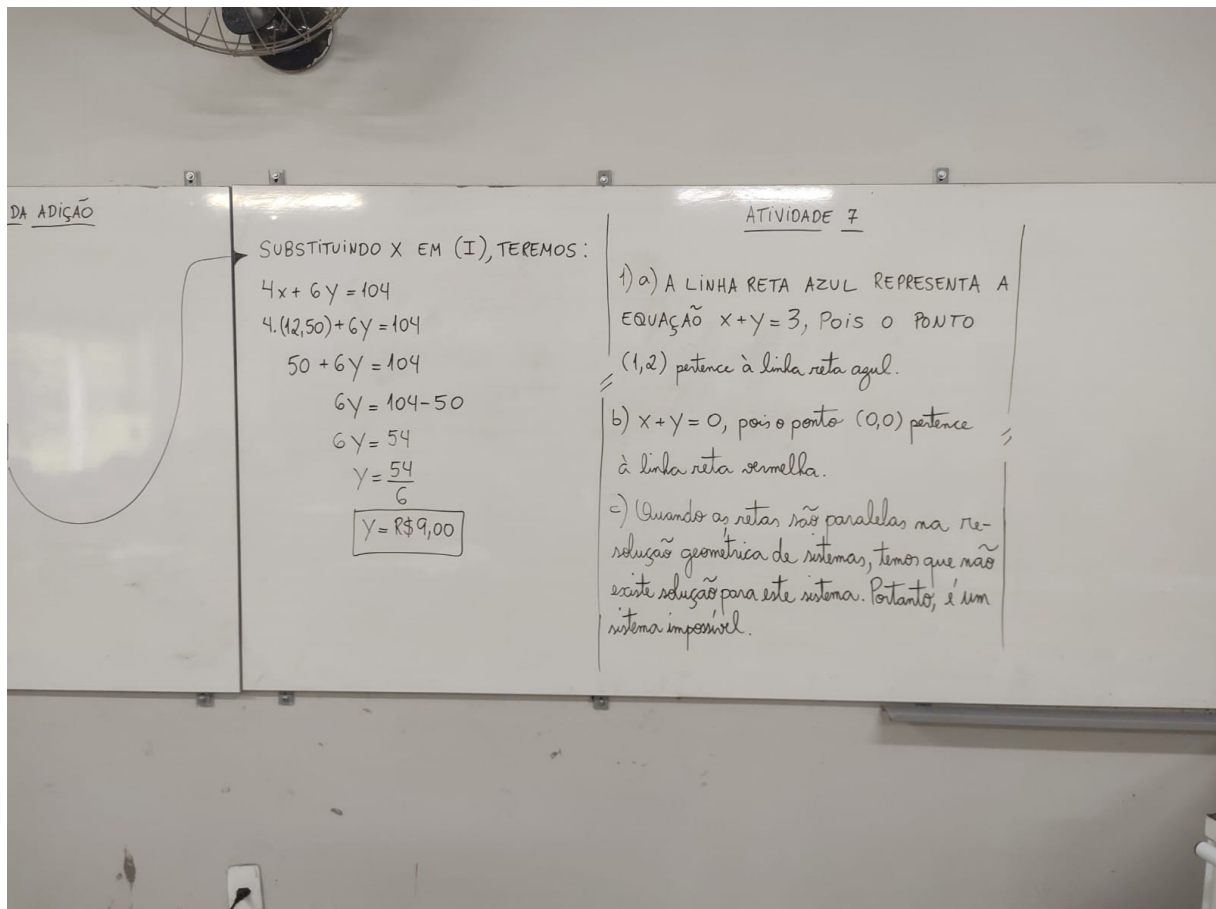 DA ADIÇÃO
SUBSTITUINDO X EM (I), TEREMOS:
4x + 6y = 104
4.(12,50) + 6y = 104
50 + 6y = 104
6y = 104-50
6y = 54
y = 54/6
y = R$9,00
ATIVIDADE 7
1) a) A LINHA RETA AZUL REPRESENTA A
EQUAÇÃO X+Y=3, POIS O PONTO
(1,2) pertence à linha reta azul.
b) X+Y=0, pois o ponto (0,0) pertence
à linha reta vermelha.
c) Quando as retas são paralelas na re-
solução geométrica de sistemas, temos que não
existe solução para este sistema. Portanto, é um
sistema impossível.